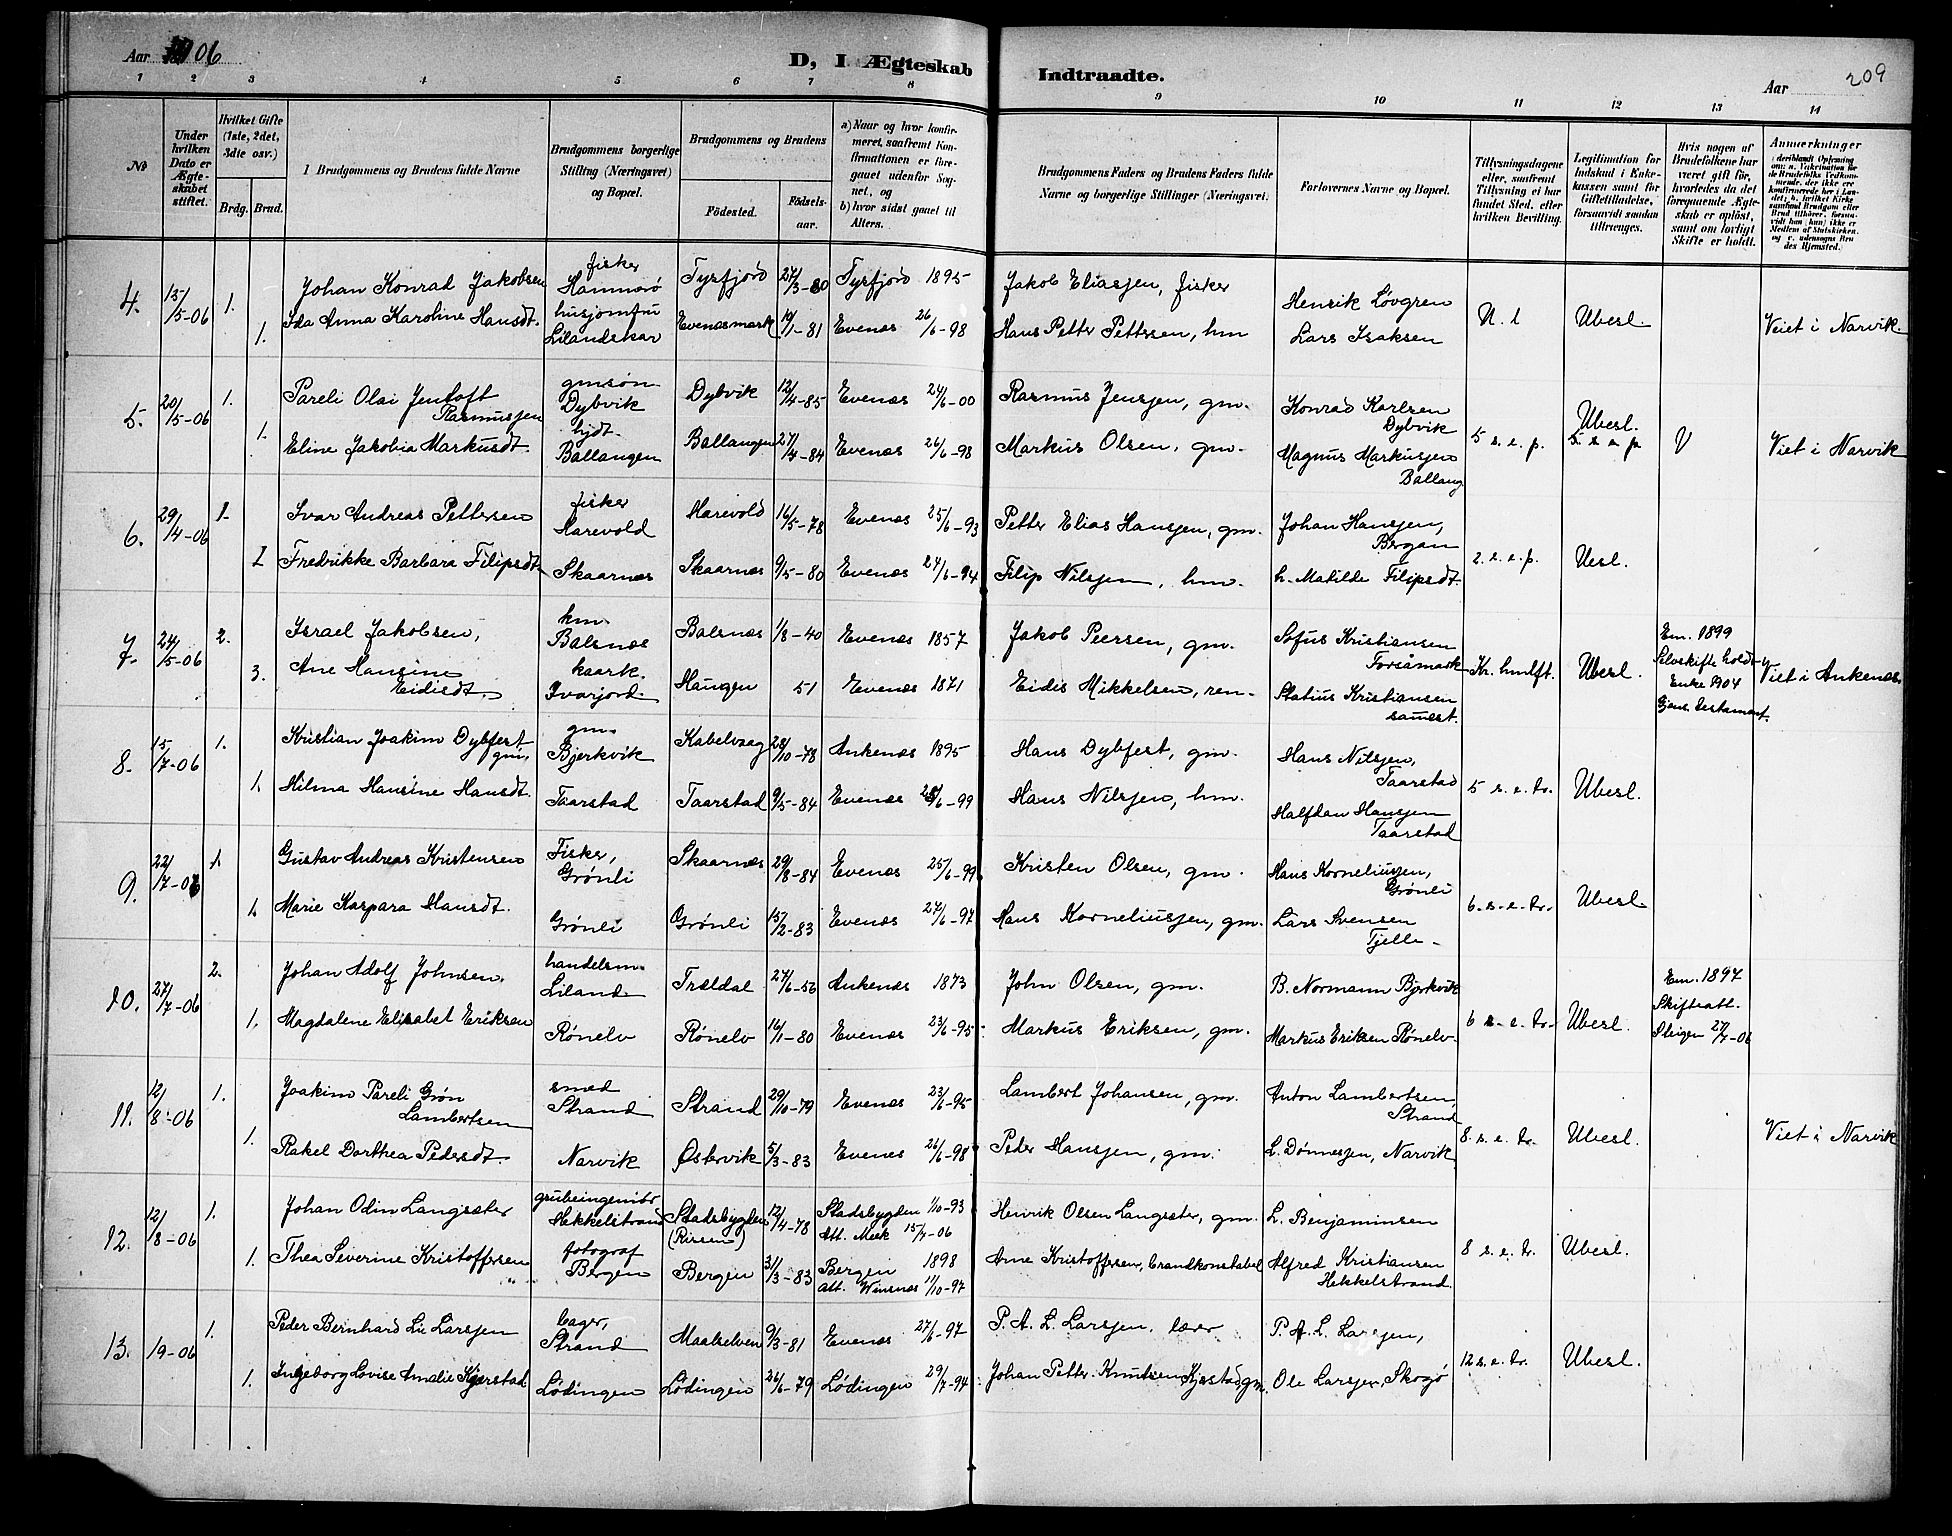 Aar 1906
D, I Ægteskab
Indtraadte.
Aar
209
1 2 3 4 5 6 7 8 9 10 11 12 13 14
№
Under hvilken Dato er Ægteskabet stiftet.
Hvilket Gifte (1ste, 2det, 3die osv.)
Brdg. Brud.
Brudgommens og Brudens fulde Navne
Brudgommens borgerlige Stilling (Næringsvei) og Bopæl.
Brudgommens og Brudens
Fødested. Fødselsaar.
a) Naar og hvor konfirmeret, saafremt Konfirmationen er foregaaet udenfor Sognet, og
b) hvor sidst gaaet til Alters.
Brudgommens Faders og Brudens Faders fulde Navne og borgerlige Stillinger (Næringsvei.
Forlovernes Navne og Bopæl.
Tillysningsdagene eller, saafremt Tillysning ei har fundet Sted, efter hvilken Bevilling.
Legitimation for Indskud i Enkekassen samt for Giftetilladelse, forsaavidt saadan tiltrænges.
Hvis nogen af Brudefolkene har været gift før, hvorledes da det foregaaende Ægteskab er opløst, samt om lovligt Skifte er holdt.
Anmærkninger
4. 15/5-06 1. Johan Konrad Jakobsen fisker Hammerø Tysfjord 27/3-80 Tysfjord 1895 Jakob Eliasjen, fisker Henrik Løvgren
1. Ida Anna Karoline Hansdt. husjomfru Lilandskar Evenæsmark 19/1-81 Evenæs 26/6-98 Hans Petter Pettersen, hm Lars Isaksen N. l Ubesl. Viet i Narvik.
5. 20/5-06 1. Pareli Olai Jentoft Rasmusjen gmsøn Dybvik Dybvik 12/4-85 Evenæs 24/6-00 Rasmus Jensjen, gm. Konrad Karlsen Dybvik
1. Eline Jakobia Markusdt. hjdt. Ballangen Ballangen 27/4-84 Evenæs 26/6-98 Markus Olsen, gm. Magnus Markusjen Ballang. 5 s. e. p. Ubesl. 5 s e p V Viet i Narvik
6. 29/4-06 1. Ivar Andreas Pettersen fisker Harevold Harevold 16/5-78 Evenæs 25/6-93 Petter Elias Hansjen, gm. Johan Hansjen, Bergan
1 Fredrikke Barbara Filipsdt. Skaarnæs Skaarnæs 9/5-80 Evenæs 24/6-94 Filip Nilsjen, hm. h. Matilde Filipsdt. 2. s. e. p. Uesl.
7. 24/5-06 2. Israel Jakobsen, km. Balsnæs Balsnæs 1/8-40 Evenæs 1857 Jakob Peersen, gm. Sofus Kristiansen Forsåmark Em. 1899 Selvskifte holdt
3. Ane Hansine Eidisdt. kaark. Ivarjord Haugen 51 Evenæs 1871 Eidis Mikkelsen, ren- Statius Kristiansen samest. Kr. hmlft. Ubesl. Enke 1904 Gjens. testament. Viet i Ankenæs.
8. 15/7-06 1. Kristian Joakim Dybfest gm. gm. Bjerkvik Kabelvaag 28/10-78 Ankenæs 1895 Hans Dybfest, gm. Hans Nilsjen, Taarstad
1. Hilma Hansine Hansdt. Taarstad Taarstad 9/5-84 Evenæs 25/6-99 Hans Nilsjen, hm. Halfdan Hansjen Taarstad 5 s. e. tr. Ubesl.
9. 22/7-06 1. Gustav Andreas Kristensen Fisker, Grønli Skaarnæs 29/8-84 Evenæs 25/6-99 Kristen Olsen, gm. Hans Korneliusjen, Grønli
1. Marie Kaspara Hansdt. Grønli Grønli 15/2-83 Evenæs 27/6-97 Hans Korneliusjen, gm. Lars Svensen Tjelle- 6. s. e. tr. Ubesl.
10. 27/7-06 2. Johan Adolf Johnsen. handelsm. Liland Trældal 27/6-56 Ankenæs 1873 John Olsen, gm. B. Normann Bjerkvik Em. 1897 Skifteatt.
1. Magdalene Elisabet Eriksen Rønelv Rønelv 16/1-80 Evenæs 23/6-95 Markus Eriksen, gm. Markus Eriksen Rønelv. 6 s. e. tr. Ubesl. Steigen 27/7-06
11. 12/8-06 1. Joakim Pareli Grøn Lambertsen smed Strand Strand 29/10-79 Evenæs 23/6-95 Lambert Johansen, gm. Anton Lambertsen, Strand
1. Rakel Dorthea Pedersdt. Narvik Østervik 5/3-83 Evenæs 26/6-98 Peder Hansjen, gm. L. Dønnesjen, Narvik 8. s. e. tr. Ubesl. Viet i Narvik
12. 12/8-06 1. Johan Odin Langsæter grubeingeniør Hekkelstrand Stadsbygden (Rissen) 12/4-78 Stadsbygden 1/10-93 Att. Meek 15/7-06 Henrik Olsen Langsæter, gm. L. Benjaminsen
1. Thea Severine Kristoffersen fotograf Bergen Bergen 31/3-83 Bergen 1898 att. Winsnæs 11/10-97 Arne Kristoffersen, brandkonstabel Alfred Kristiansen Hekkelstrand 8 s. e. tr. Ubesl.
13. 19-06 1. Peder Bernhard Lie Larsjen bager, Strand Maakelven 9/3-81 Evenæs 27/6-97 P. A. L. Larsjen, lærer P. A. L. Larsjen,
1. Ingeborg Lovise Amalie Kjærstad Lødingen Lødingen 26/6-79 Lødingen 29/7-94 Johan Petter Knutsen Kjæstad, gm. Ole Larsjen, Skogø 12 s. e. tr. Ubesl.